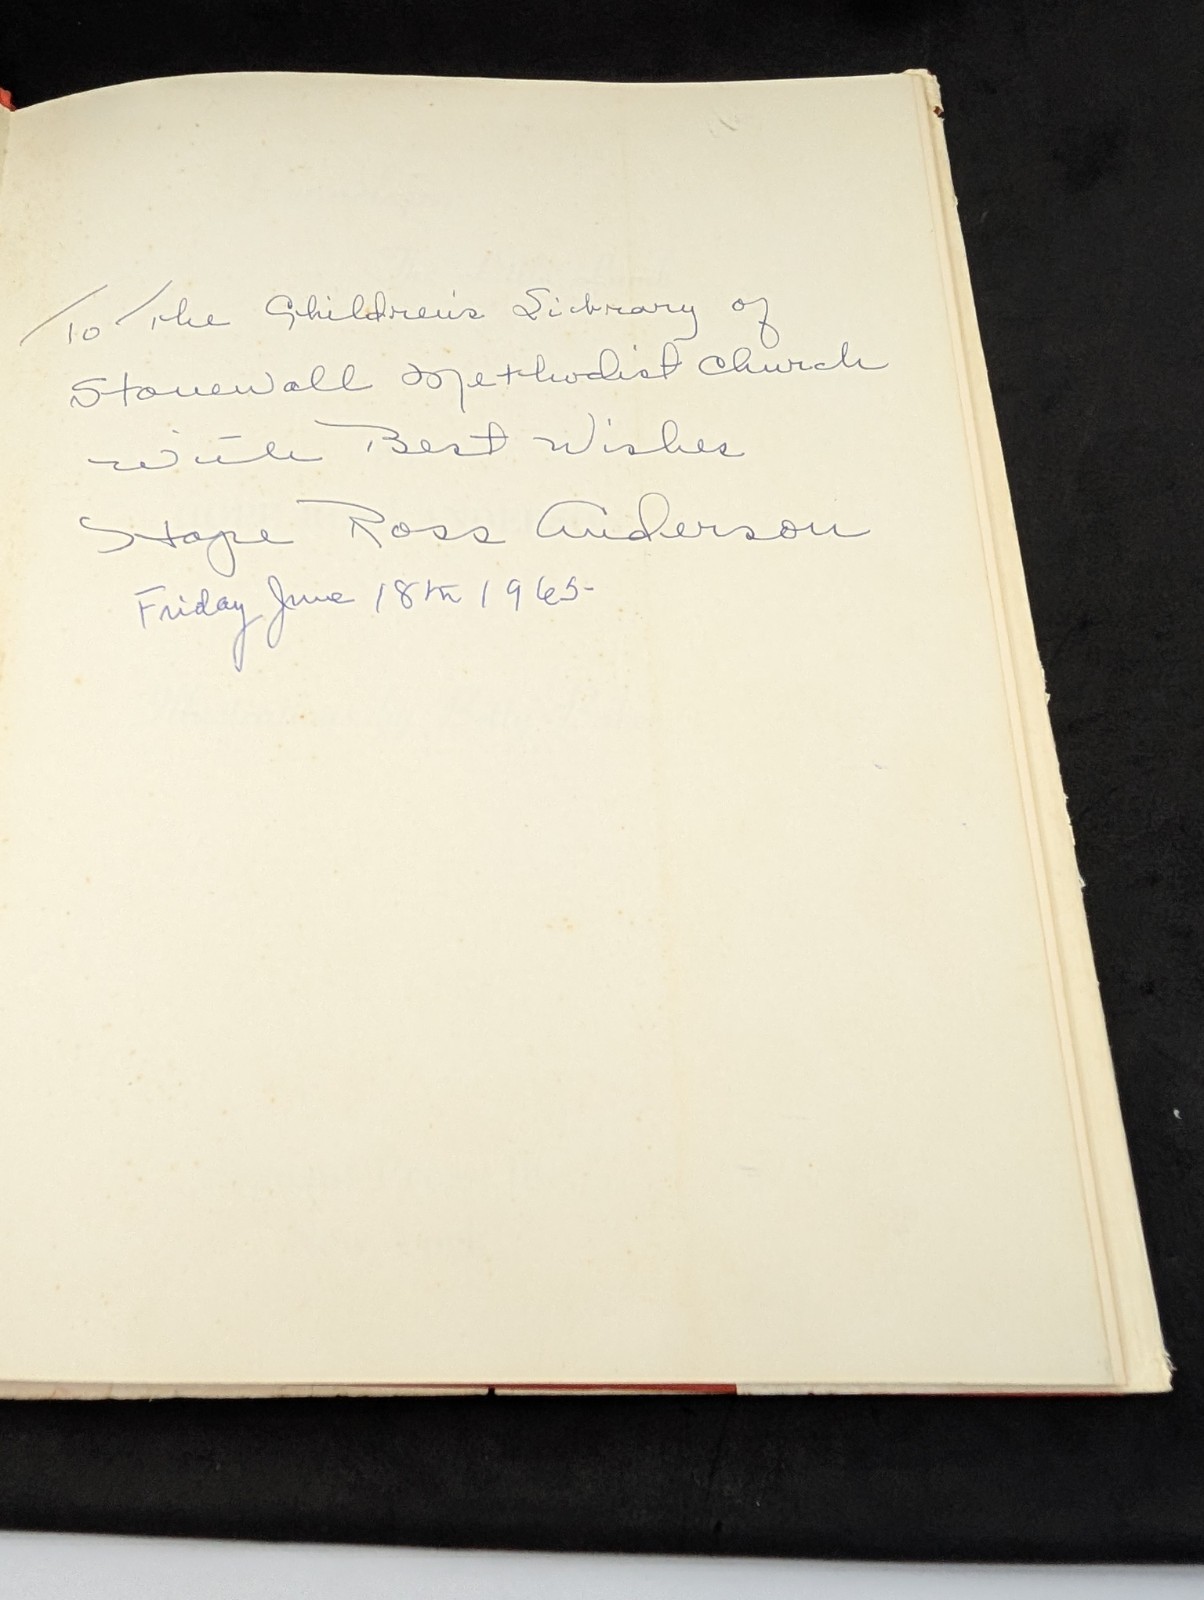 To The Children's Library of
Stonewall Methodist Church
With Best Wishes
Hope Ross Anderson
Friday June 18th 1965